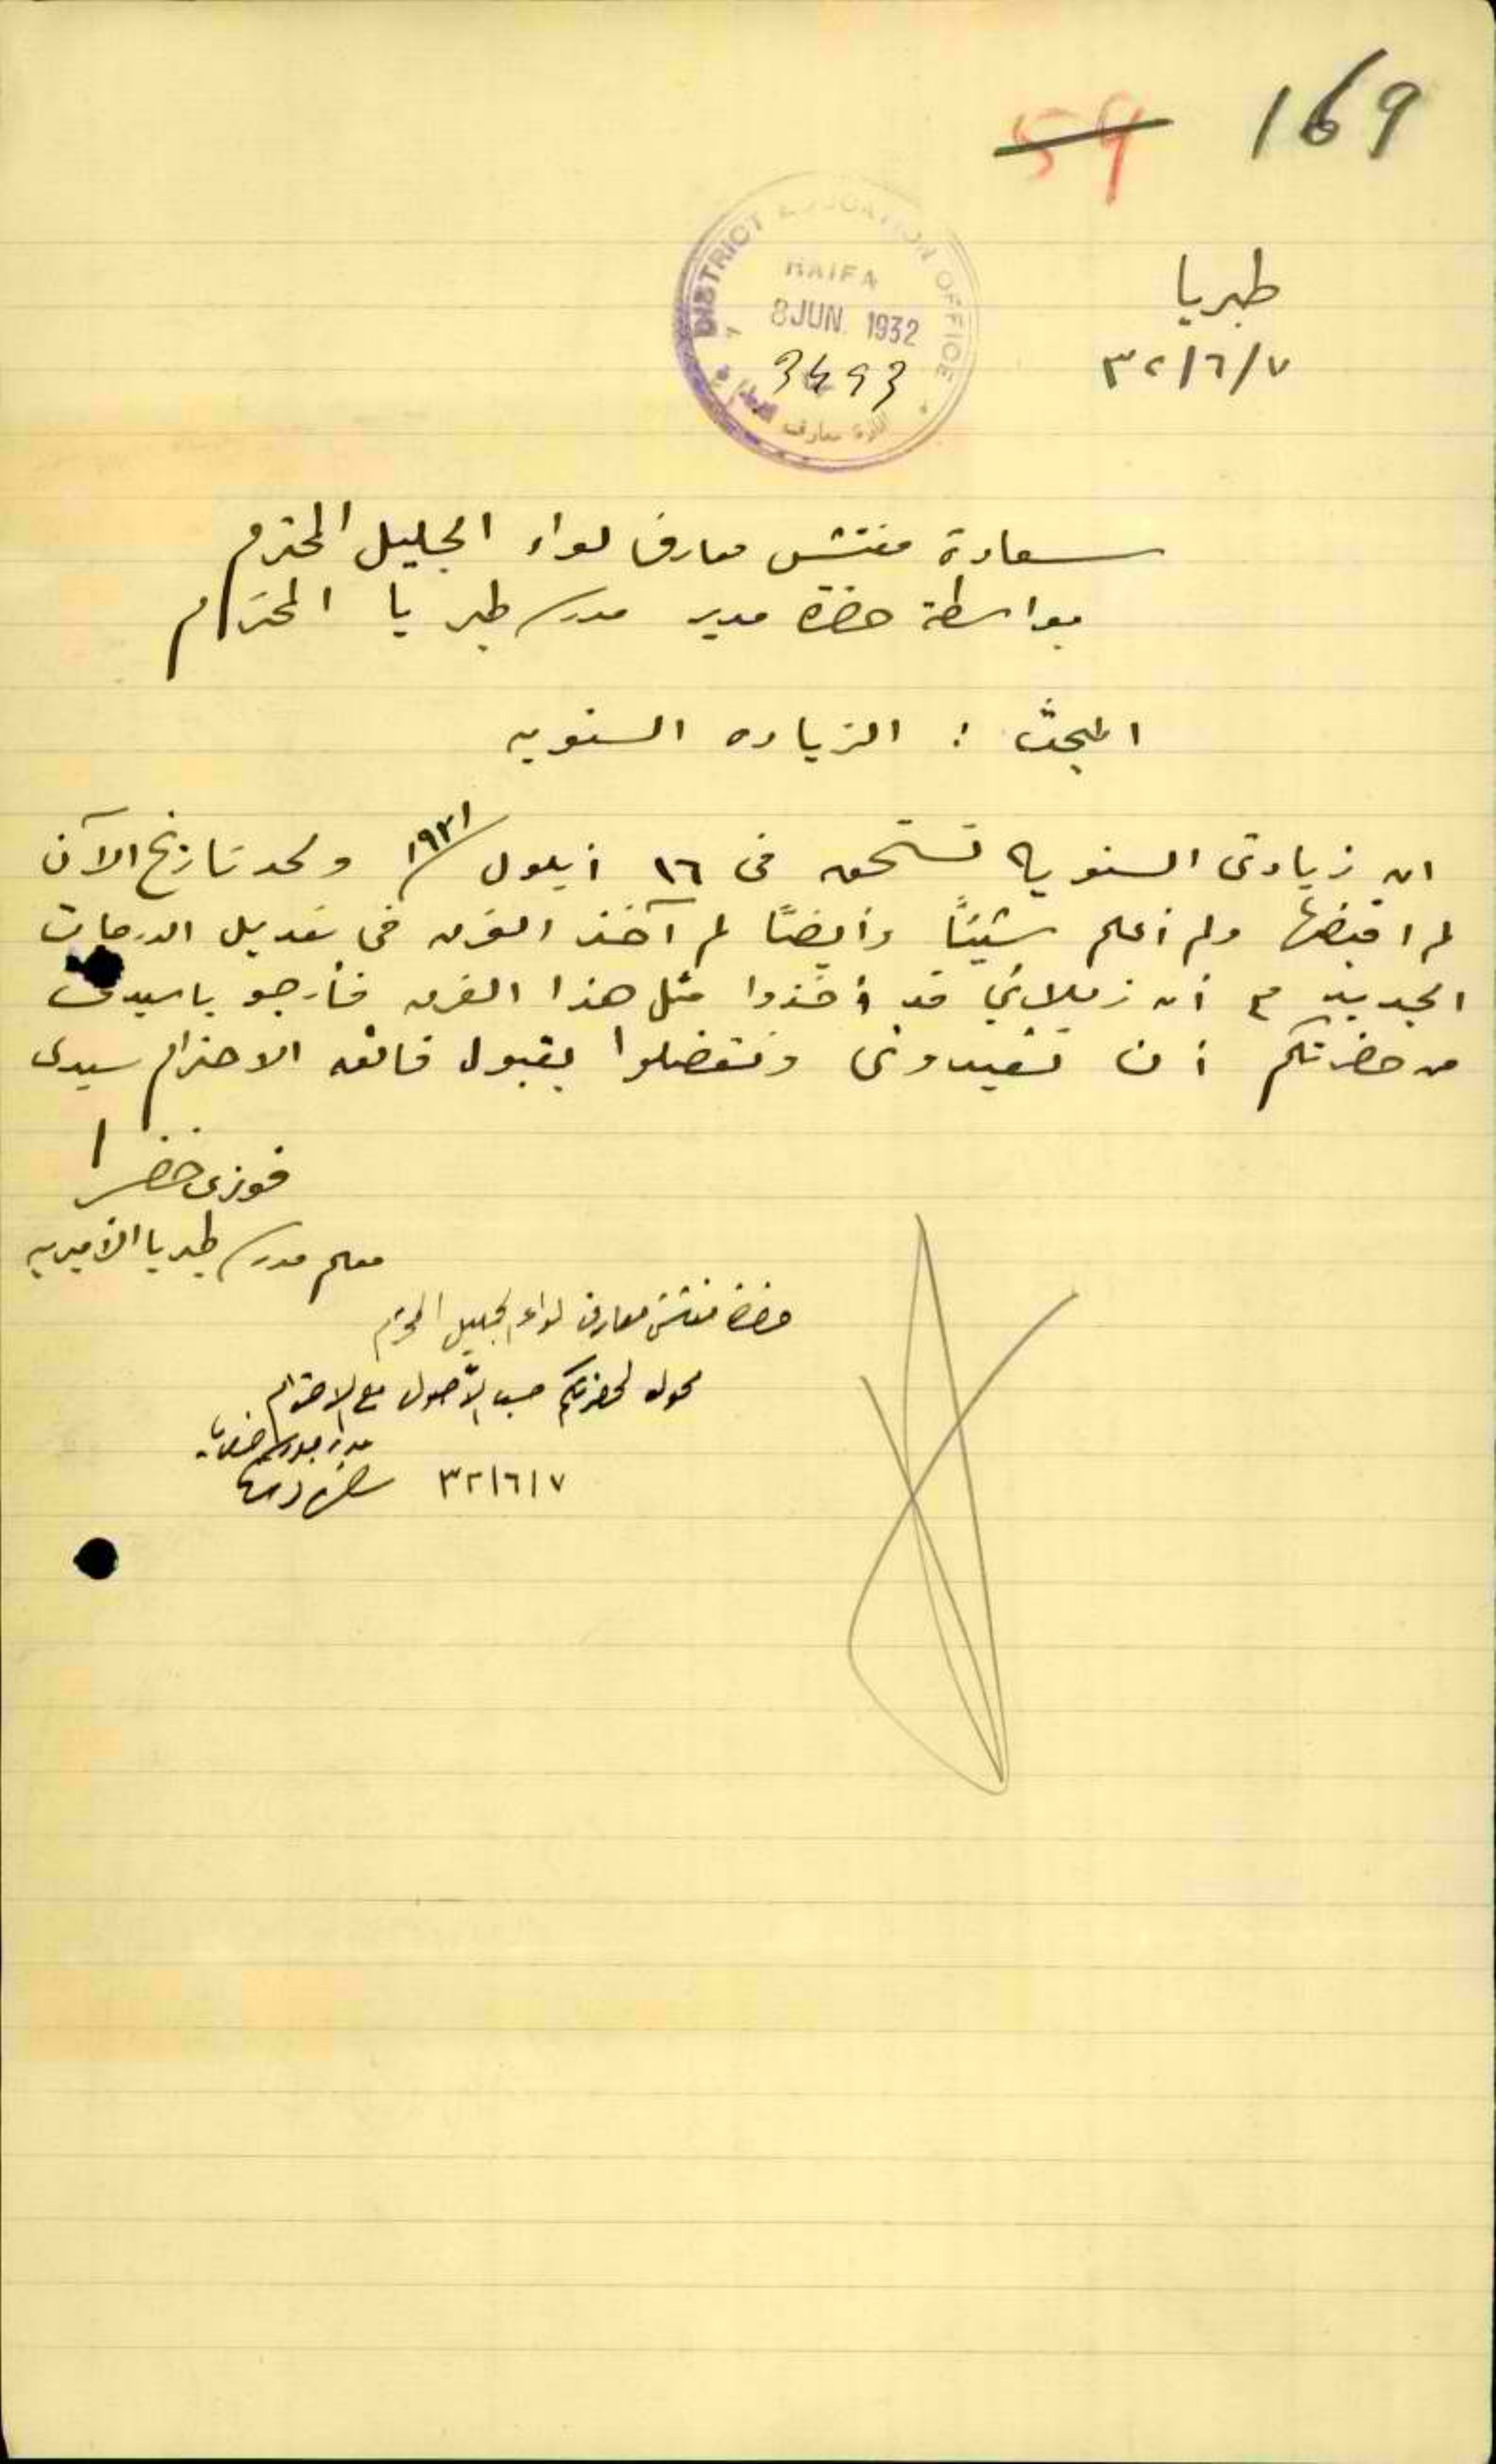 169
59
DISTRICT EDUCATION OFFICE
HAIFA
8 JUN 1932
3493
ادارة معارف
طبريا
٣٢/٦/٧
سعادة مفتش معارف لواء الجليل المحترم
بواسطة حضرة مدير مدرسة طبريا المحترم
المبحث : الزياده السنويه
ان زيادتي السنويه تستحق في ١٦ أيلول ١٩٣١ ولحد تاريخ الآن
لم اقبضها ولم أعلم شيئاً وأيضاً لم آخذ الفرق في تعديل الدرجات
الجديد مع أن زملائي قد أخذوا مثل هذا الفرق فأرجو يا سيدي
من حضرتكم أن تفيدوني وتفضلوا بقبول فائق الاحترام سيدي
فوزي خضرا
معلم مدرسة طبريا الأميريه
حضرة مفتش معارف لواء الجليل المحترم
محول لحضرتكم حسب الأصول مع الاحترام
٣٢/٦/٧